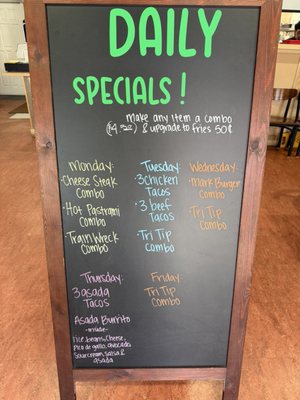 DAILY
SPECIALS!
make any item a combo
& upgrade to fries 50¢
Monday:
·Cheese Steak
Combo
·Hot Pastrami
Combo
·Train Wreck
Combo
Tuesday:
·3 chicken
Tacos
·3 beef
Tacos
·Tri Tip
Combo
Wednesday:
·Mark Burger
Combo
·Tri Tip
Combo
Thursday:
3 asada
Tacos
Asada Burrito
-inside-
rice, beans, cheese,
Pico de gallo, avocado
sour cream, salsa &
asada
Friday:
Tri Tip
Combo